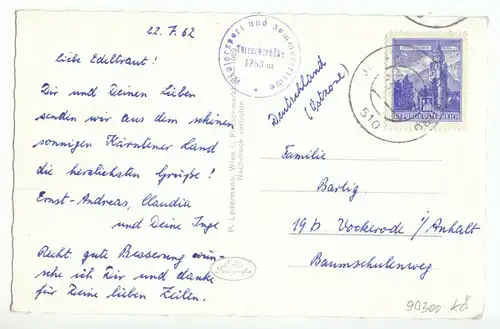 22.7.62
Liebe Edeltraut!
Dir und Deinen Lieben
senden wir aus dem schönen
sonnigen Kärntener Land
die herzlichsten Grüße!
Ernst-Andreas, Claudia
und Deine Inge
Recht gute Besserung wün-
sche ich Dir und danke
für Deine lieben Zeilen.
Wintersport und Sommerfrische
1763 m
P. Ledermann, Wien I.,
Nachdruck verboten
Deutschland
(Ostzone)
REPUBLIK ÖSTERREICH
510
Familie
Bartig
19b Vockerode i/Anhalt
Baumschulenweg
90300 Kä